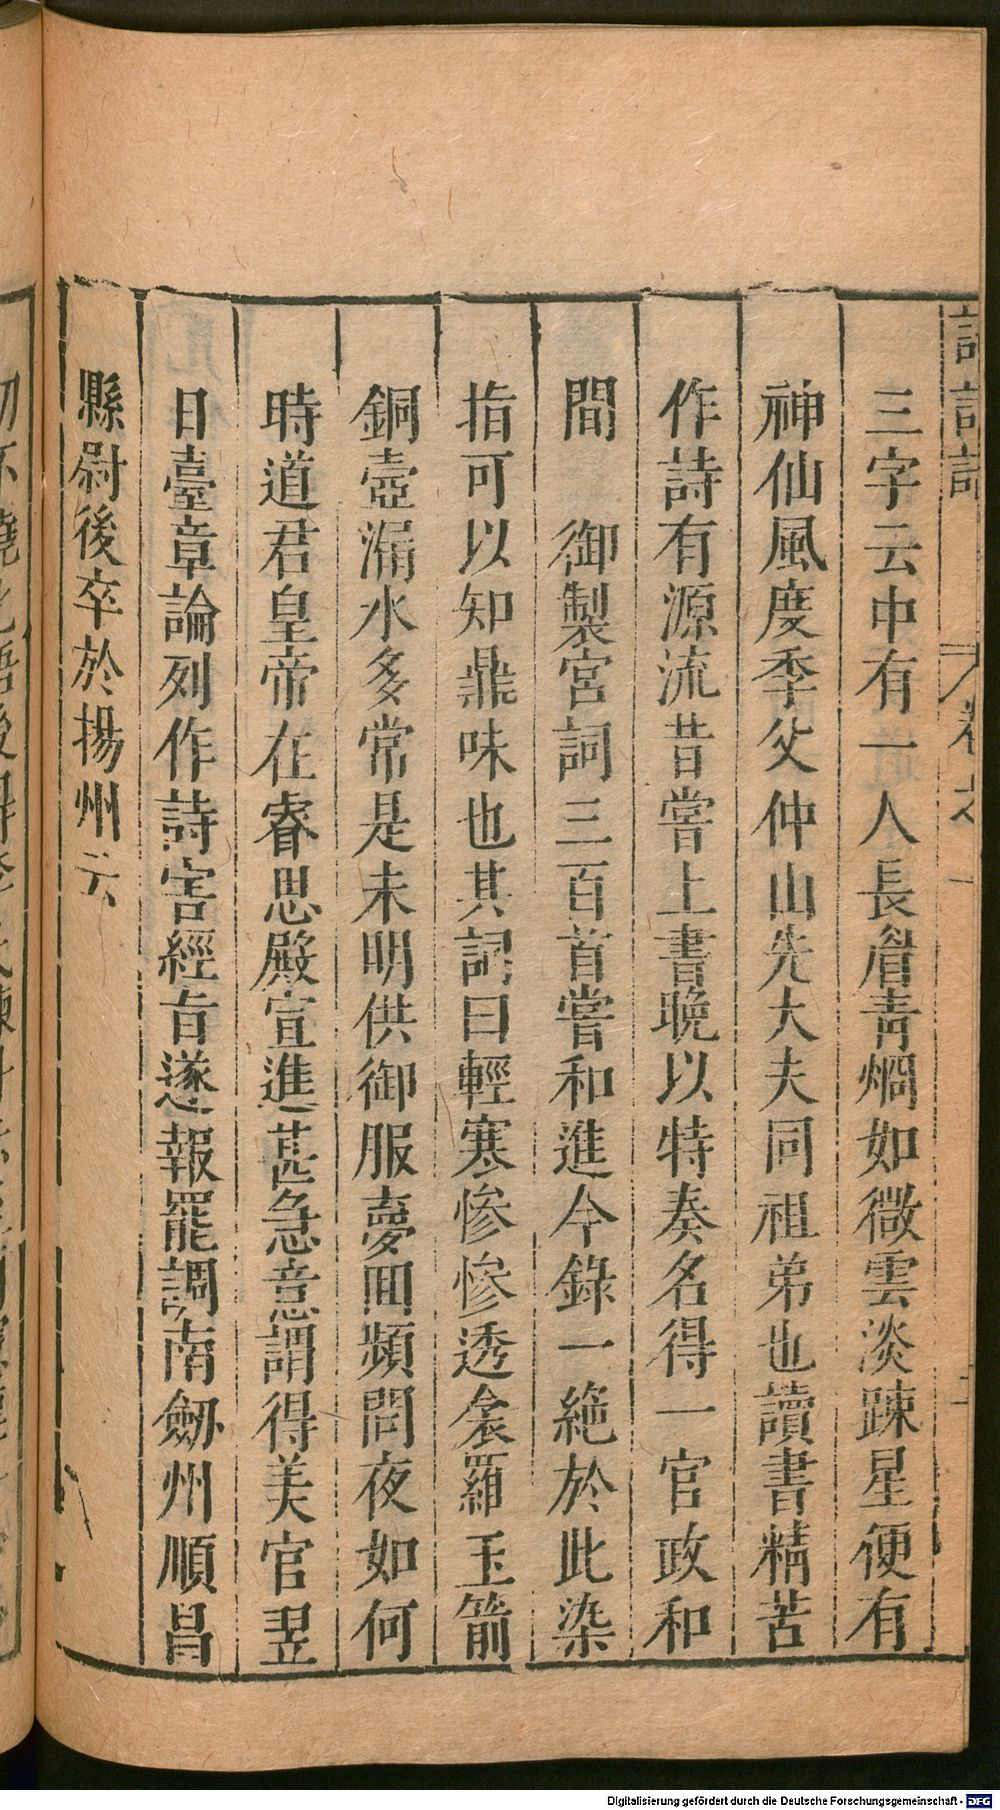 三字云中有一人長眉青烱如微雲淡踈星便有
神仙風度季父仲山先大夫同祖弟也讀書精苦
作詩有源流昔嘗上書晚以特奏名得一官政和
間 御製宮詞三百首嘗和進今錄一絶於此染
指可以知鼎味也其詞曰輕寒慘慘透衾羅玉箭
銅壺漏水多常是未明供御服夢囬頻問夜如何
時道君皇帝在睿思殿宣進甚急意謂得美官翌
日臺章論列作詩害經旨遂報罷調南劒州順昌
縣尉後卒於揚州云
Digitalisierung gefördert durch die Deutsche Forschungsgemeinschaft - DFG